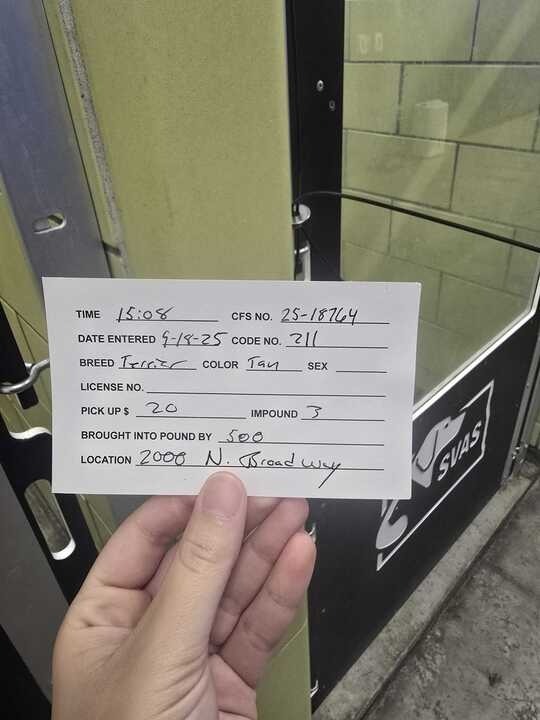 TIME 15:08 CFS NO. 25-18764
DATE ENTERED 9-18-25 CODE NO. 211
BREED Terrier COLOR Tan SEX
LICENSE NO.
PICK UP $ 20 IMPOUND 3
BROUGHT INTO POUND BY 500
LOCATION 2000 N. Broadway
SVAS